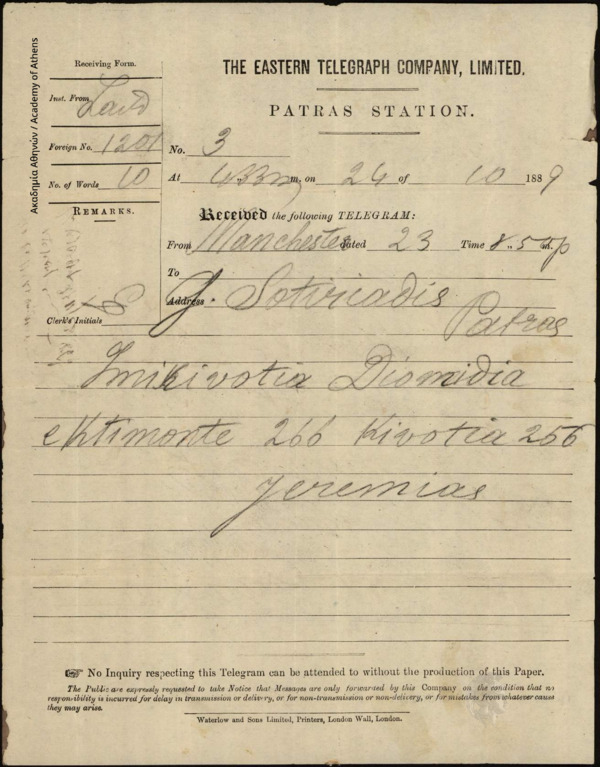 Ακαδημία Αθηνών / Academy of Athens
Receiving Form.
Inst. From
Foreign No. 1201
No. of Words 10
REMARKS.
Clerk's Initials
THE EASTERN TELEGRAPH COMPANY, LIMITED.
PATRAS STATION.
No. 3
At m. on 24 of 10 1889
Received the following TELEGRAM:
From Manchester dated 23 Time 8.5 m. p
To
Address. G. Sotiriadis
Patras
Imikivotia Diomidia
ektimonte 266 Kivotia 256
Jeremias
☞ No Inquiry respecting this Telegram can be attended to without the production of this Paper.
The Public are expressly requested to take Notice that Messages are only forwarded by this Company on the condition that no
responsibility is incurred for delay in transmission or delivery, or for non-transmission or non-delivery, or for mistakes from whatever cause
they may arise.
Waterlow and Sons Limited, Printers, London Wall, London.